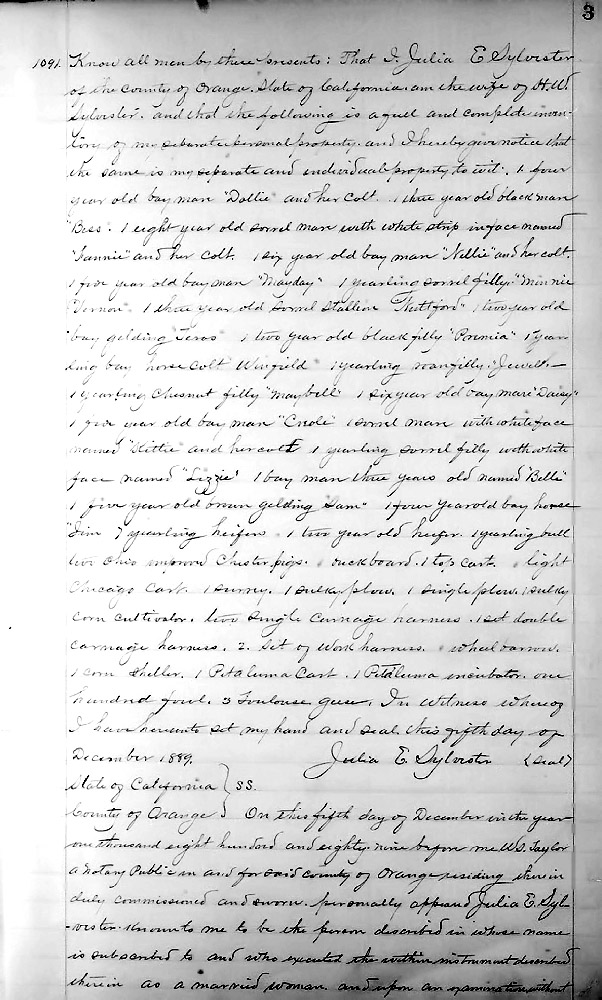 3
1091. Know all men by these presents: That I, Julia E Sylvester
of the County of Orange, State of California, am the wife of H. W.
Sylvester, and that the following is a full and complete inven-
tory of my separate personal property, and I hereby give notice that
the same is my separate and individual property to wit: 1 four
year old bay mare "Dollie" and her colt. 1 three year old black mare
"Bess". 1 eight year old sorrel mare with white strip in face named
"Fannie" and her colt. 1 six year old bay mare "Nellie" and her colt.
1 five year old bay mare "Mayday" 1 yearling sorrel filly "Minnie
Vernon" 1 three year old sorrel stallion 1 two year old
bay gelding 1 two year old black filly 1 year-
ling bay horse colt Winfield 1 yearling roan filly "Jewell"—
1 yearling Chesnut filly "Maybell" 1 six year old bay mare "Daisy"
1 five year old bay mare "Creole" 1 sorrel mare with white face
named and her colt 1 yearling sorrel filly with white
face named "Lizzie" 1 bay mare three years old named "Belle"
1 five year old brown gelding Sam" 1 four year old bay horse
"Jim 7 yearling heifers 1 two year old heifer. 1 yearling bull
two Ohio improved Chester pigs. buckboard. 1 top cart. light
Chicago Cart. 1 surrey. 1 sulky plow. 1 single plow. 1 sulky
corn cultivator. two single carriage harness. 1 set double
carriage harness. 2. set of work harness. wheel barrow.
1 corn Sheller. 1 Petaluma Cart. 1 Petaluma incubator. one
hundred fowl. 3 Toulouse geese. In witness whereof
I have hereunto set my hand and seal this fifth day of
December 1889. Julia E. Sylvester (seal)
State of California } SS.
County of Orange } On this fifth day of December in the year
one thousand eight hundred and eighty-nine before me Taylor
a Notary Public in and for said county of Orange residing therein
duly commissioned and sworn. personally appeared Julia E. Syl-
-vester known to me to be the person described in whose name
is subscribed to and who executed the within instrument described
therein as a married woman. and upon an examination without